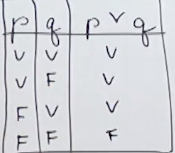 p q p v q
V V V
V F V
F V V
F F F